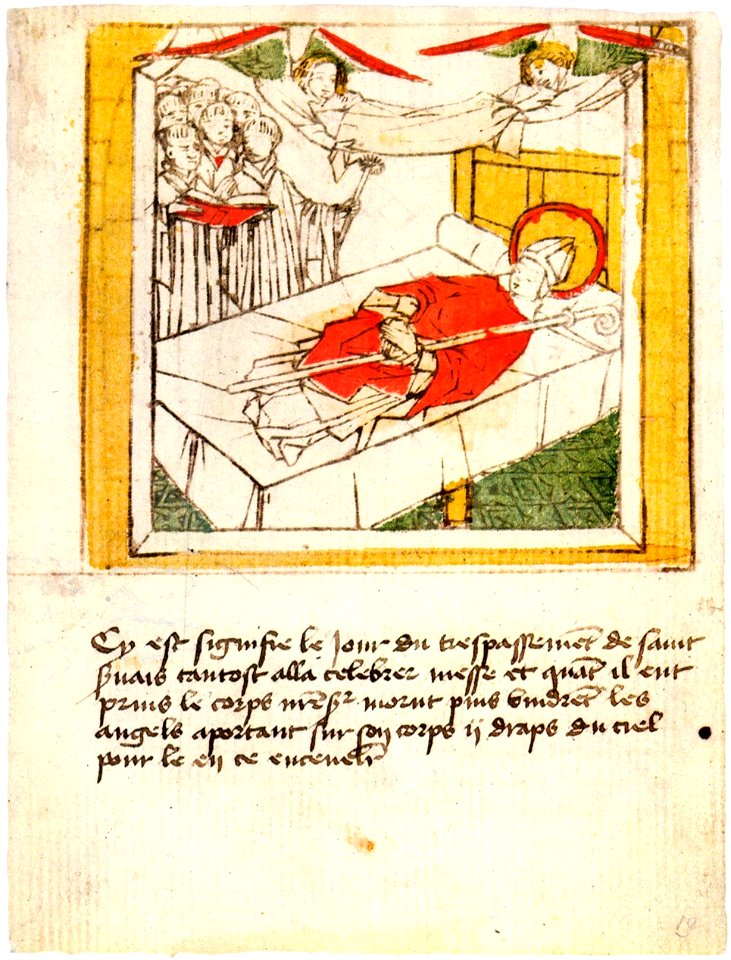 Cy est signifie le Jour du trespassemēt de saint
s̄uais tantost alla celebrer messe et quāt il eut
prins le corps morut puis vindrēt les
angels aportant sur son corps ij draps du ciel
pour le en ce encevelir